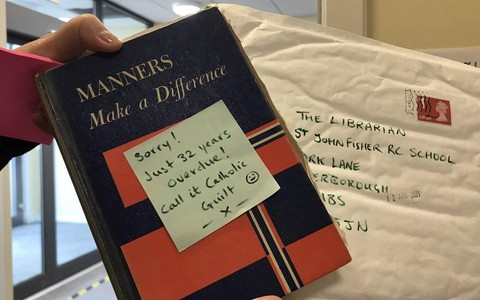 MANNERS
Make a Difference
Sorry!
Just 32 years
overdue!
Call it Catholic
Guilt ☺
- x -
THE LIBRARIAN
ST JOHN FISHER RC SCHOOL
RK LANE
ERBOROUGH
IBS
JJN